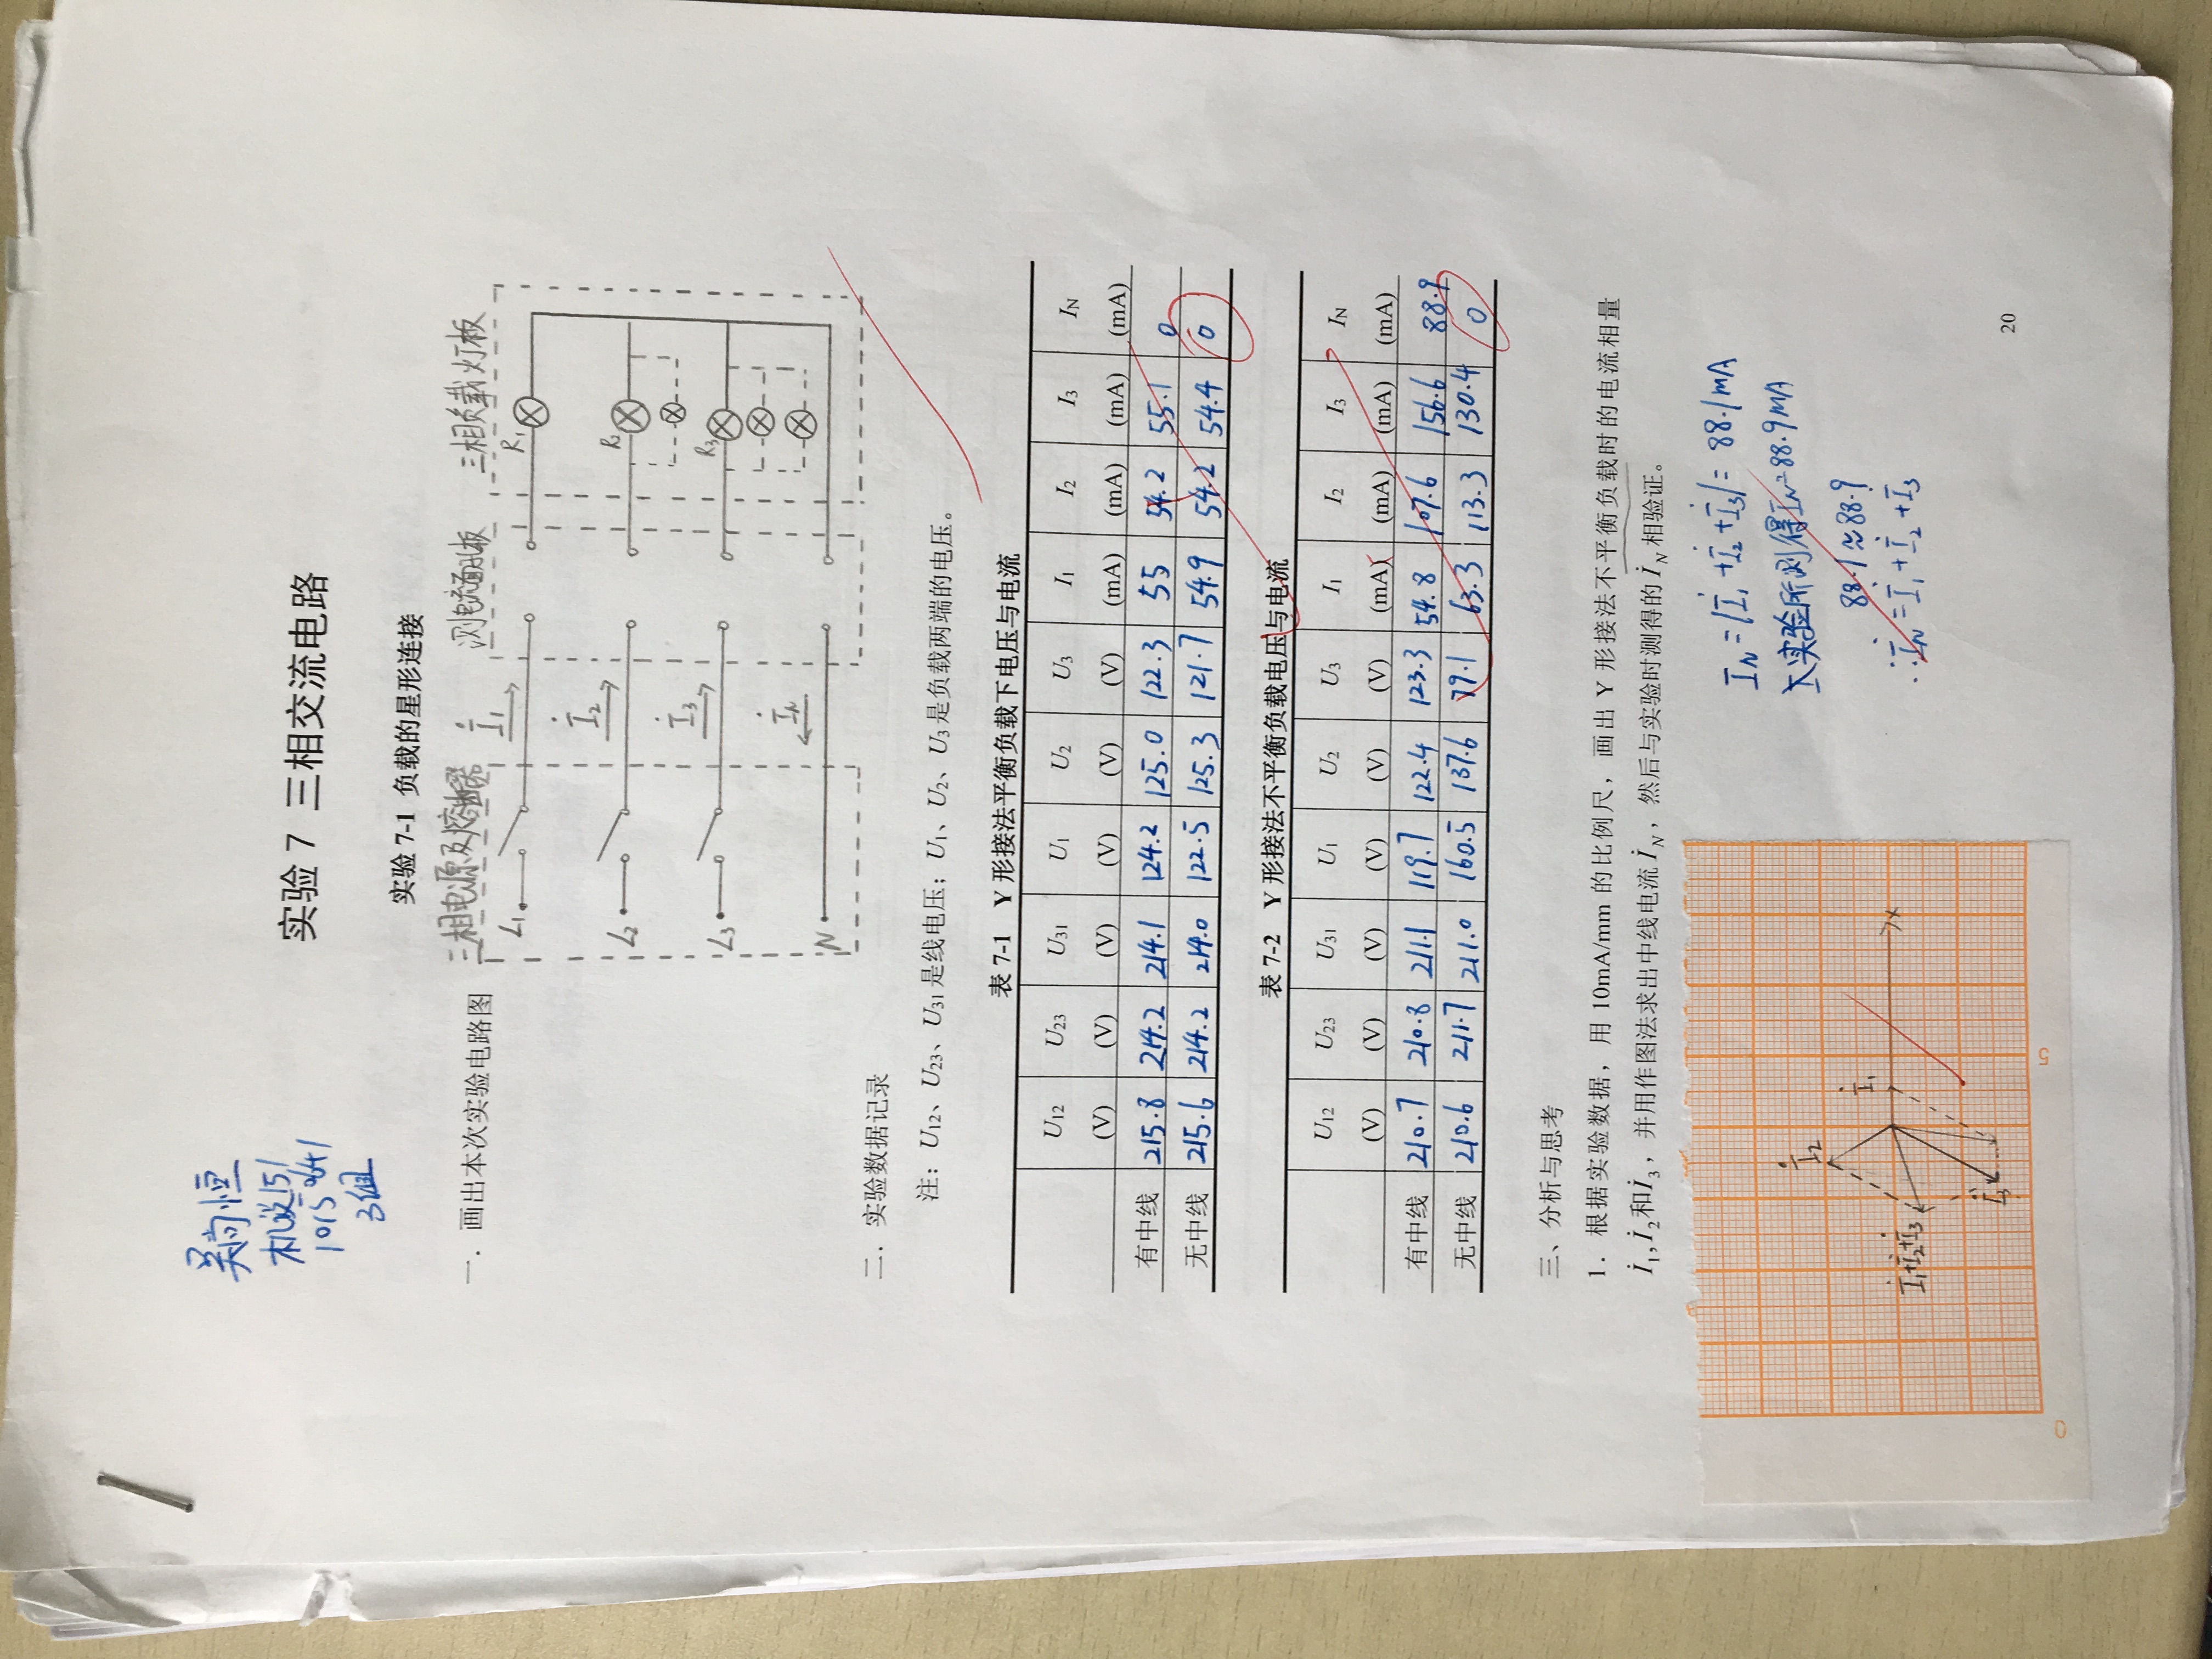 吴尚恒
机设151
10150641
3组
实验 7 三相交流电路
实验 7-1 负载的星形连接
一．画出本次实验电路图
三相电源及熔断器 İ₁ 测电流插孔板 三相负载灯板
L₁ R₁
İ₂
L₂ R₂
İ₃
L₃ R₃
İN
N
二．实验数据记录
注：U12、U23、U31是线电压；U1、U2、U3是负载两端的电压。
表 7-1 Y 形接法平衡负载下电压与电流
U12 U23 U31 U1 U2 U3 I1 I2 I3 IN
(V) (V) (V) (V) (V) (V) (mA) (mA) (mA) (mA)
有中线 215.8 214.2 214.1 124.2 125.0 122.3 55 54.2 55.1 0
无中线 215.6 214.2 214.0 122.5 125.3 121.7 54.9 54.2 54.4 0
表 7-2 Y 形接法不平衡负载电压与电流
U12 U23 U31 U1 U2 U3 I1 I2 I3 IN
(V) (V) (V) (V) (V) (V) (mA) (mA) (mA) (mA)
有中线 210.7 210.8 211.1 119.7 122.4 123.3 54.8 107.6 156.6 88.9
无中线 210.6 211.7 211.0 160.5 137.6 79.1 63.3 113.3 130.4 0
三、分析与思考
1．根据实验数据，用 10mA/mm 的比例尺，画出 Y 形接法不平衡负载时的电流相量
İ1,İ2和İ3，并用作图法求出中线电流İN，然后与实验时测得的İN相验证。
IN=|İ₁+İ₂+İ₃|=88.1mA
实验所测得IN=88.9mA
88.1≈88.9
∴İN=İ₁+İ₂+İ₃
İ₂
İ₁
x
İ₁+İ₂+İ₃
İ₃
0 5
20